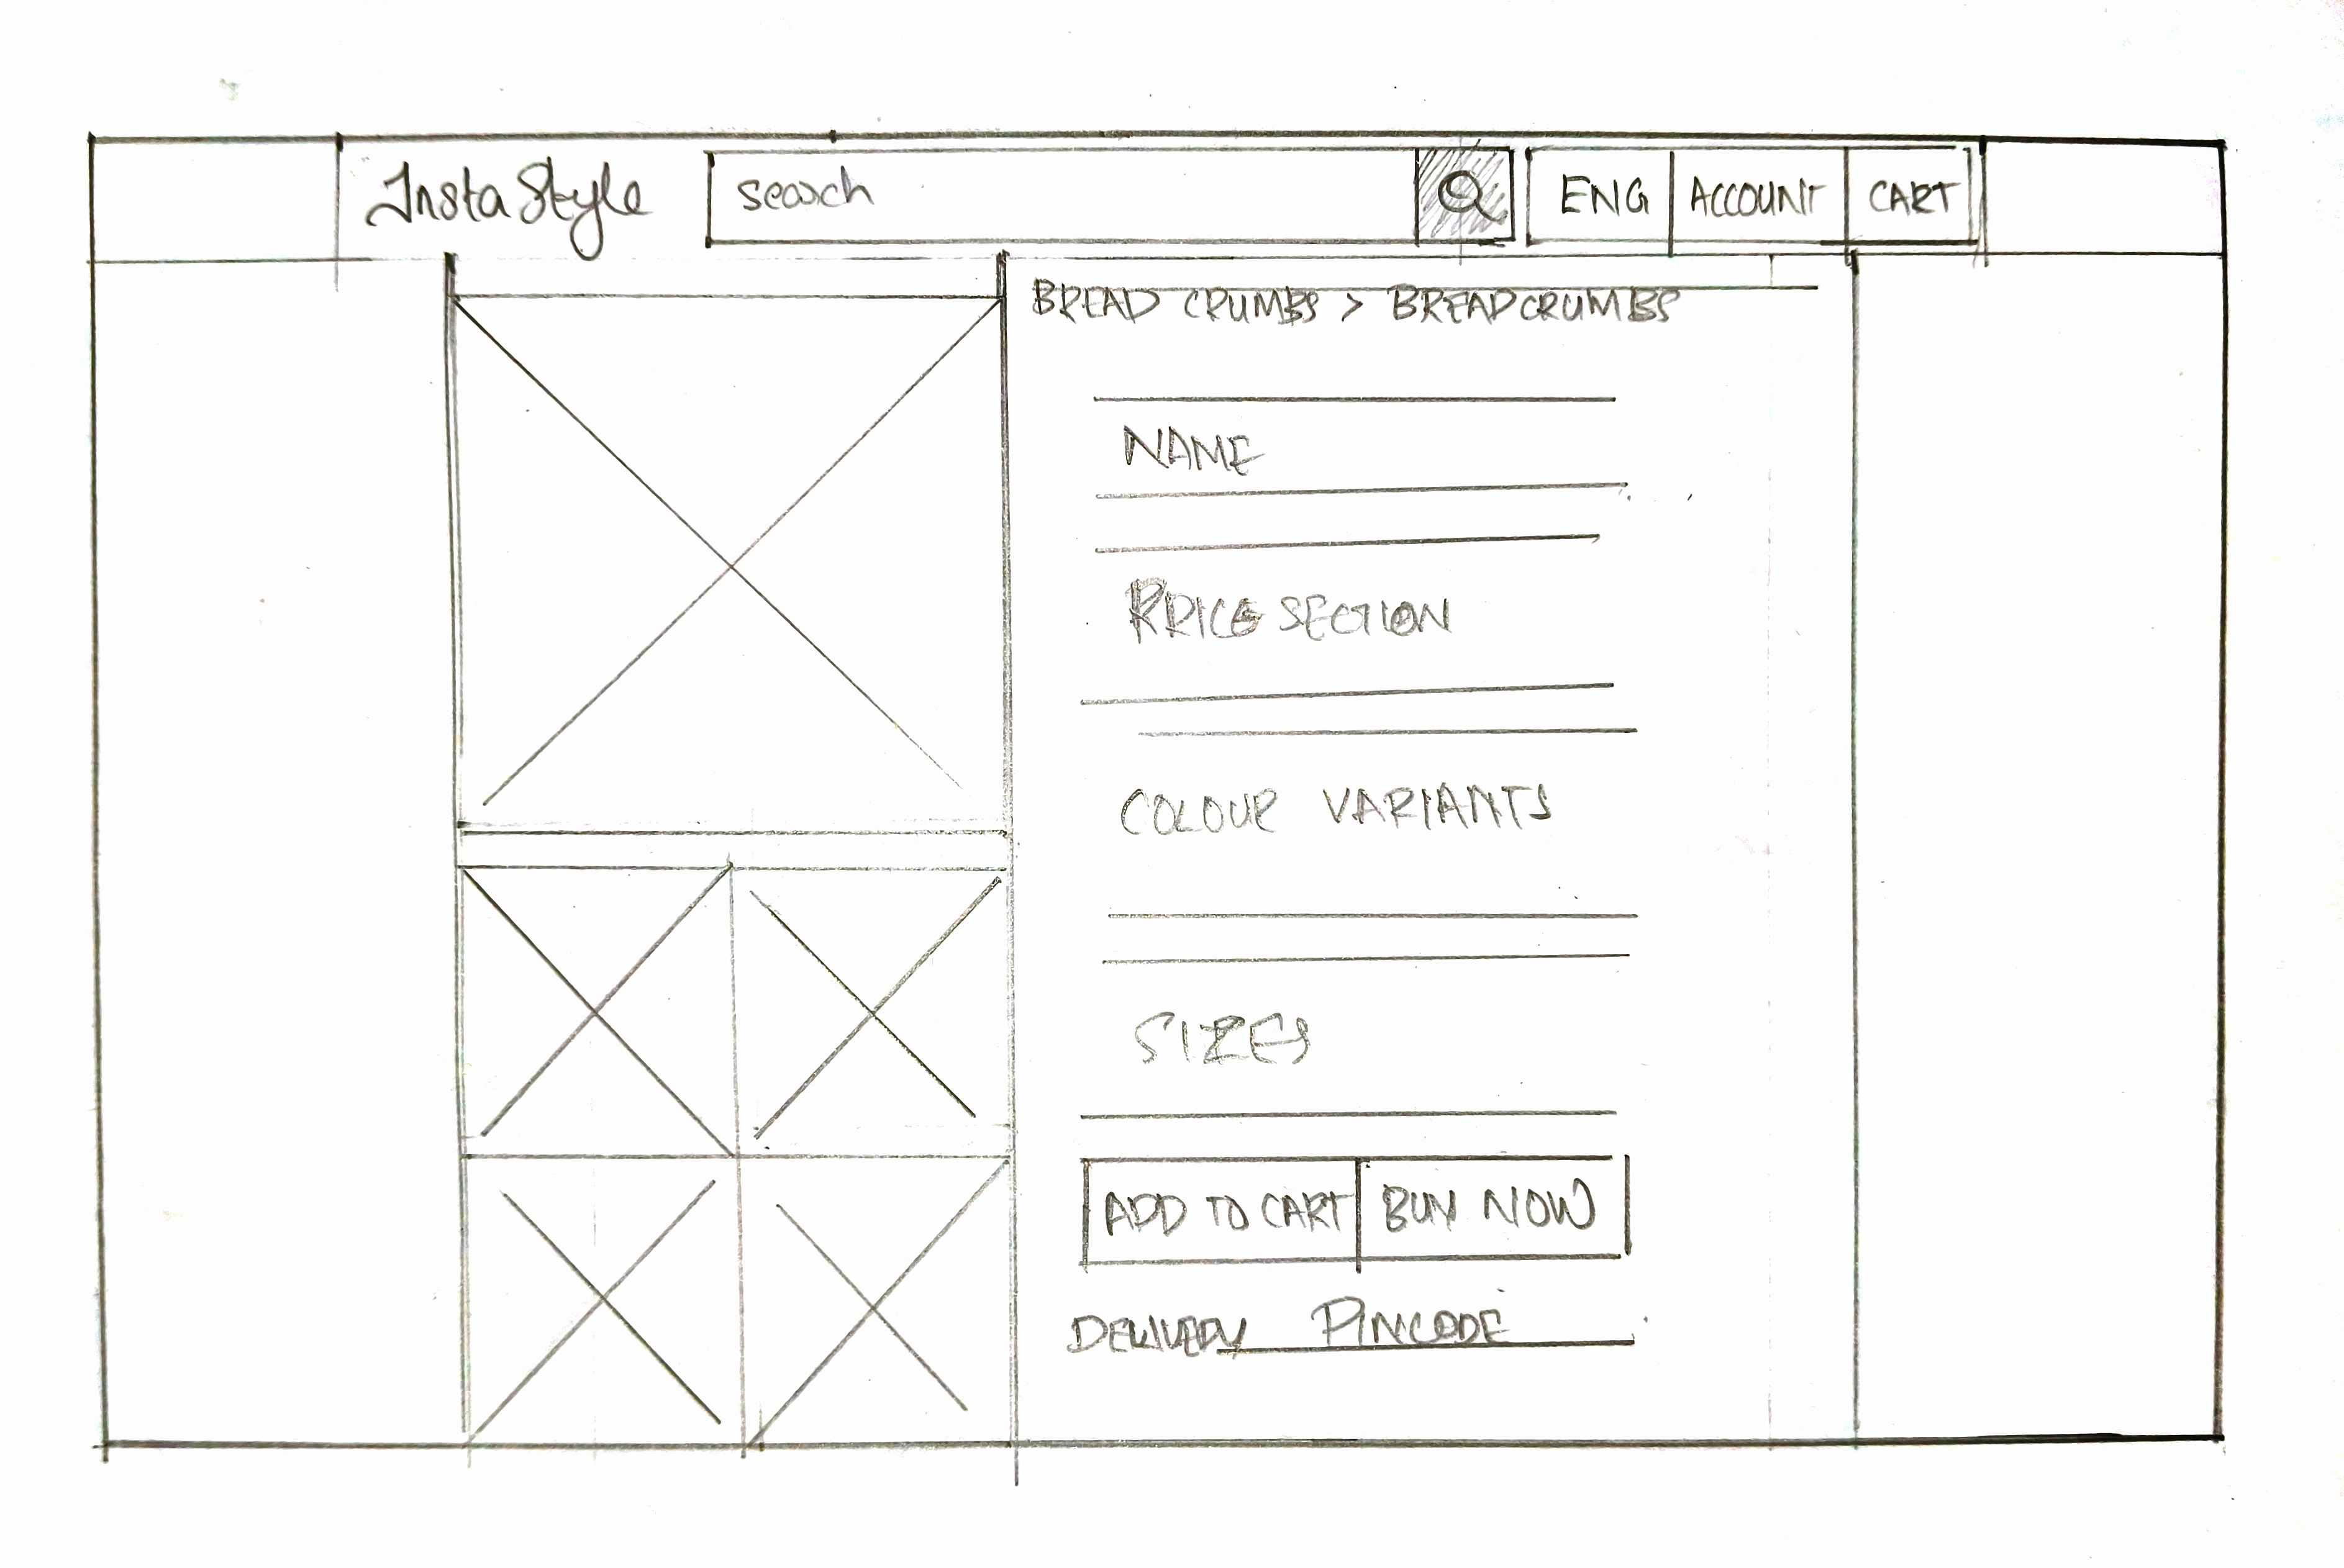 Insta Style search ENG ACCOUNT CART
BREAD CRUMBS > BREADCRUMBS
NAME
PRICE SECTION
COLOUR VARIANTS
SIZES
ADD TO CART BUY NOW
DELIVERY PINCODE